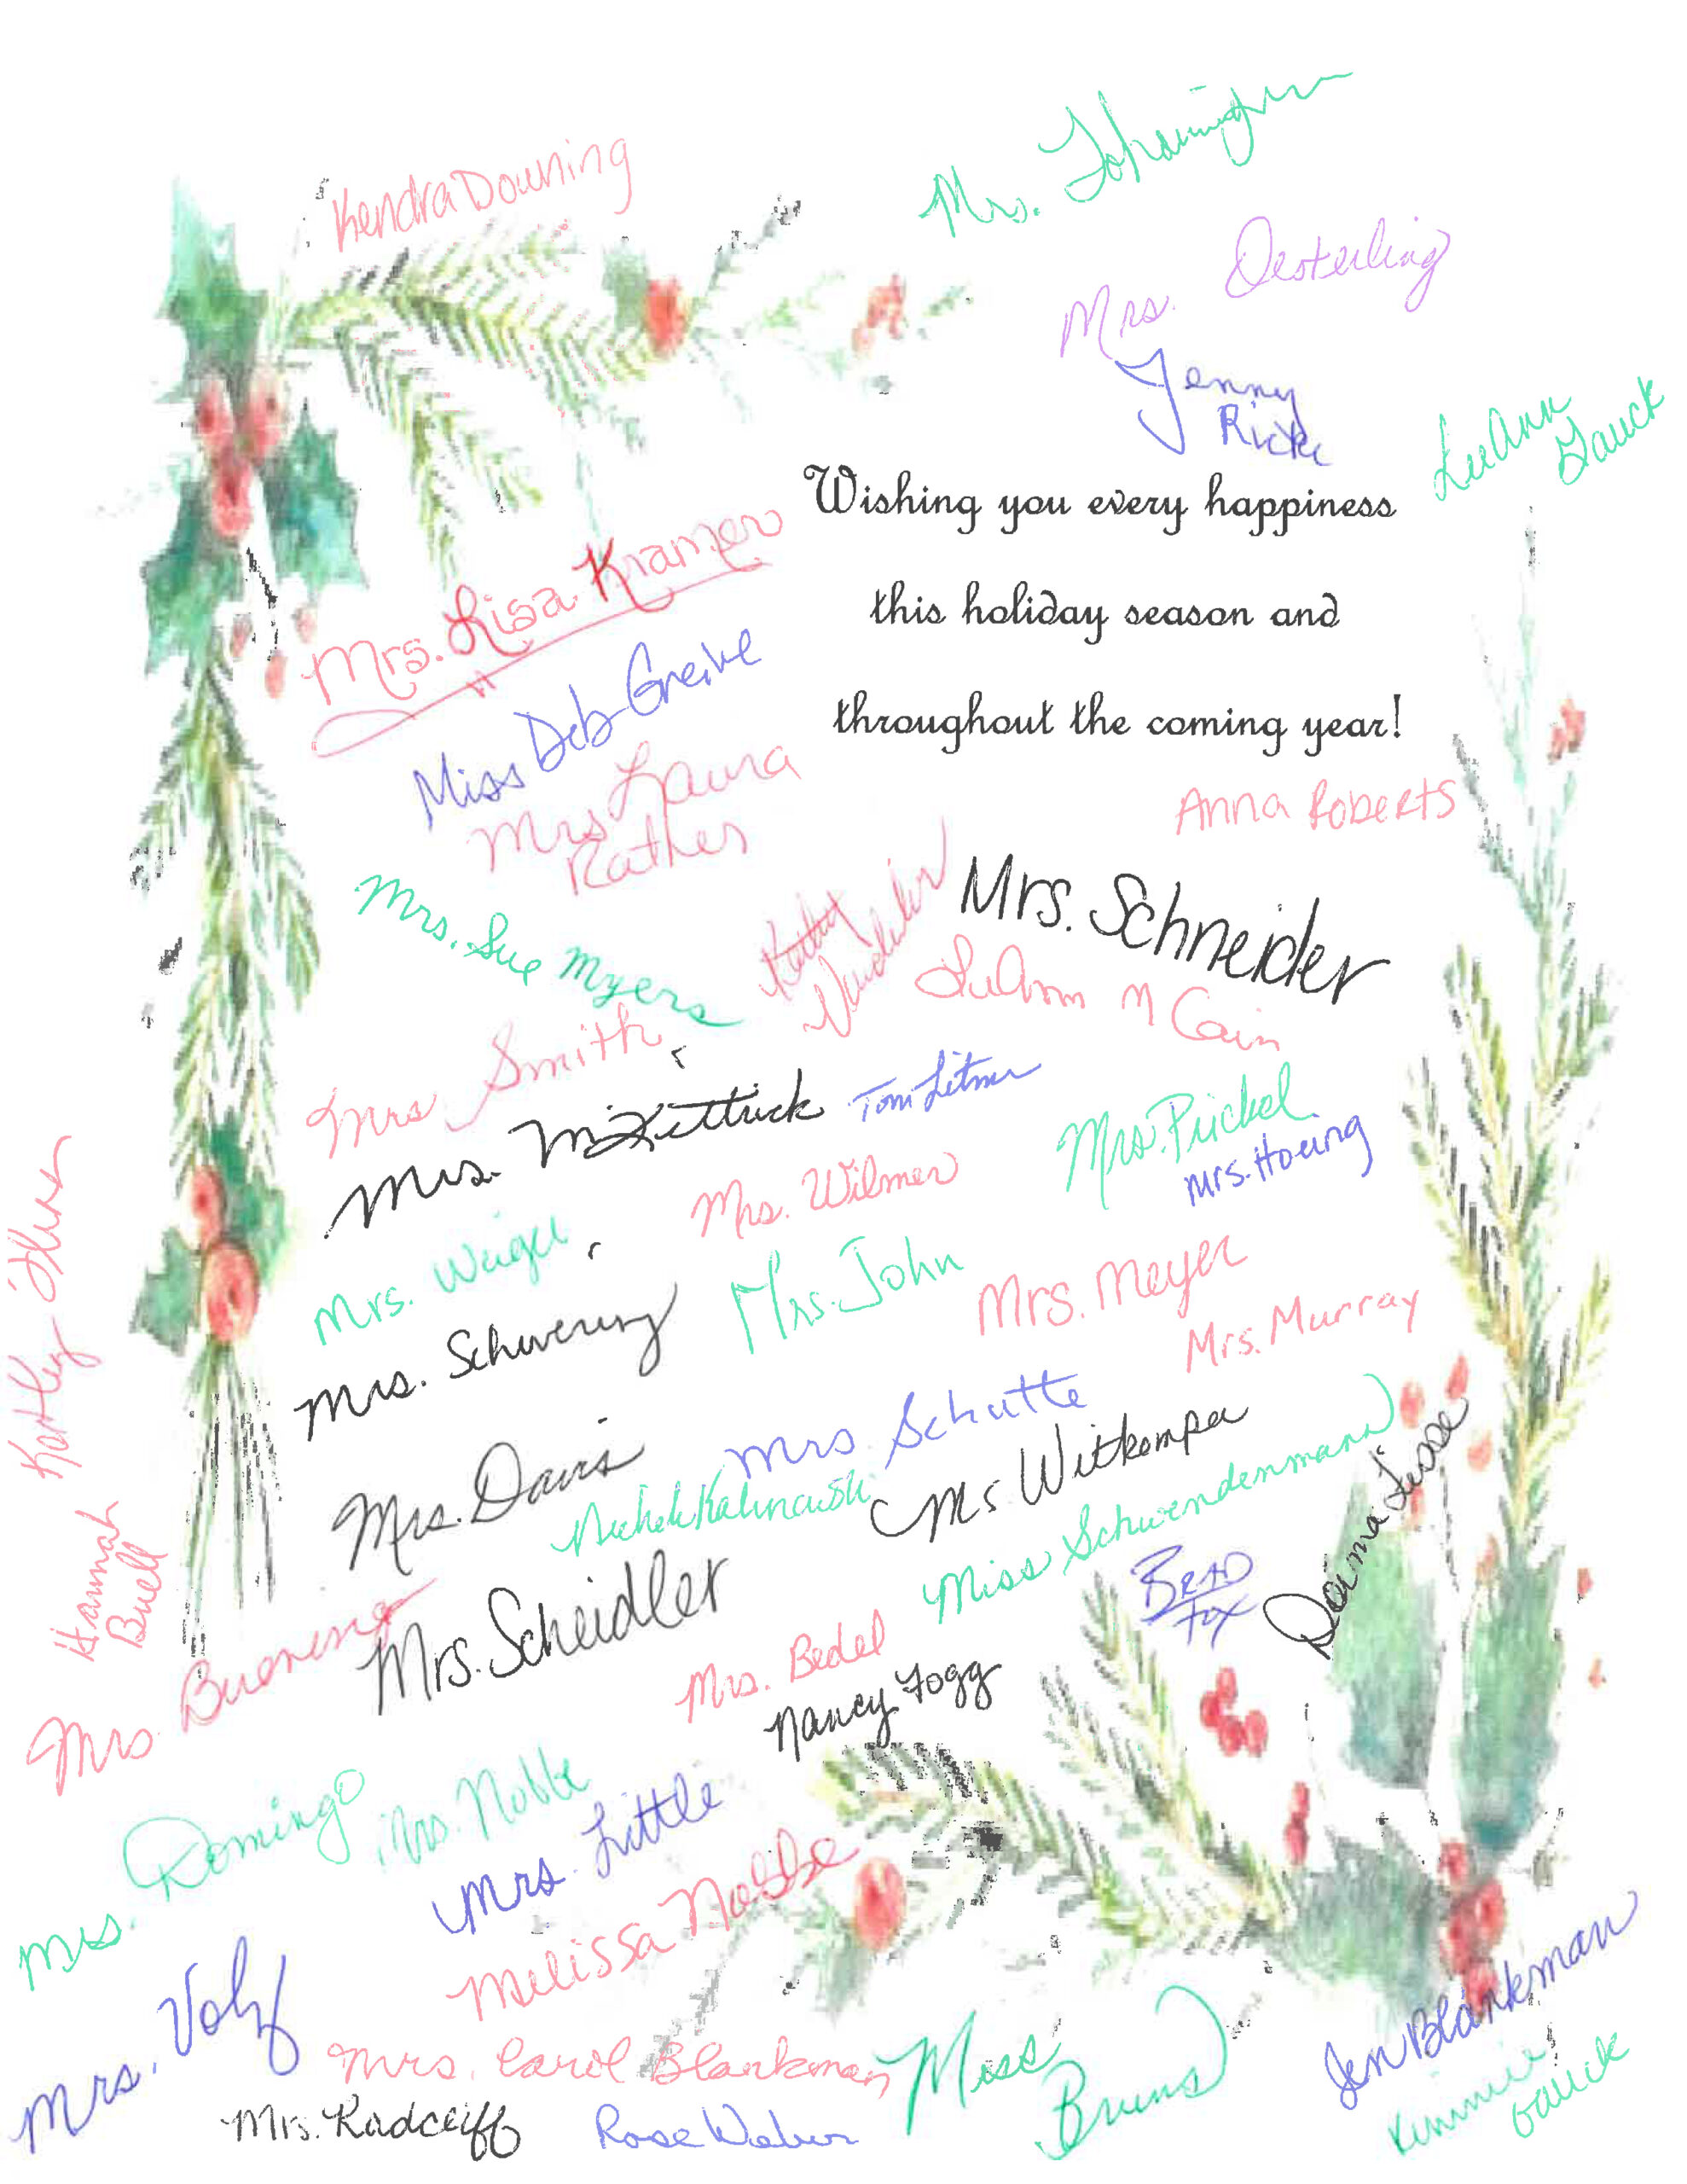 Kendra Downing
Mrs.
Mrs. Oesterling
Jenny
Ricke
LeeAnn
Gauck
Wishing you every happiness
this holiday season and
throughout the coming year!
Mrs. Lisa Kramer
Miss Deb Greive
Mrs Laura
Rather
Anna Roberts
Mrs. Schneider
Mrs. Sue Myers
Kathy
LuAnn McCain
Mrs Smith
Mrs. McKittrick
Tom
Mrs. Prickel
Mrs. Hoeing
Mrs. Wilmer
Mrs. Weigel
Mrs. John
Mrs. Meyer
Mrs. Murray
Mrs. Schwering
Karley
Mrs Schutte
Mrs. Davis
Ms. Witkemper
Miss Schwendenmann
Donna
Hannah
Buell
Brad
Fox
Mrs. Scheidler
Mrs. Buening
Mrs. Bedel
Nancy Fogg
Mrs. Domingo
Mrs. Nobbe
Mrs. Little
Melissa Nobbe
Mrs. Volz
Mrs. Carol Blankman
Miss
Bruns
Jen Blankman
Kimmie
Gauck
Mrs. Radcliff
Rose Weber